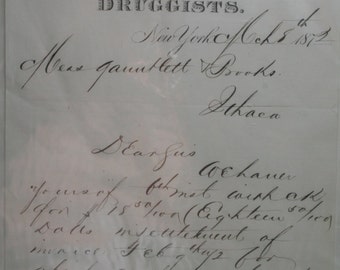 DRUGGISTS.
New York Mch 8th 1872
Mess Gauntlett & Brooks
Ithaca
Dear Sirs
We have
yours of 6th inst with ck
for $18 50/100 (Eighteen 50/100
Dolls in settlement of
invoice Feb 9th for